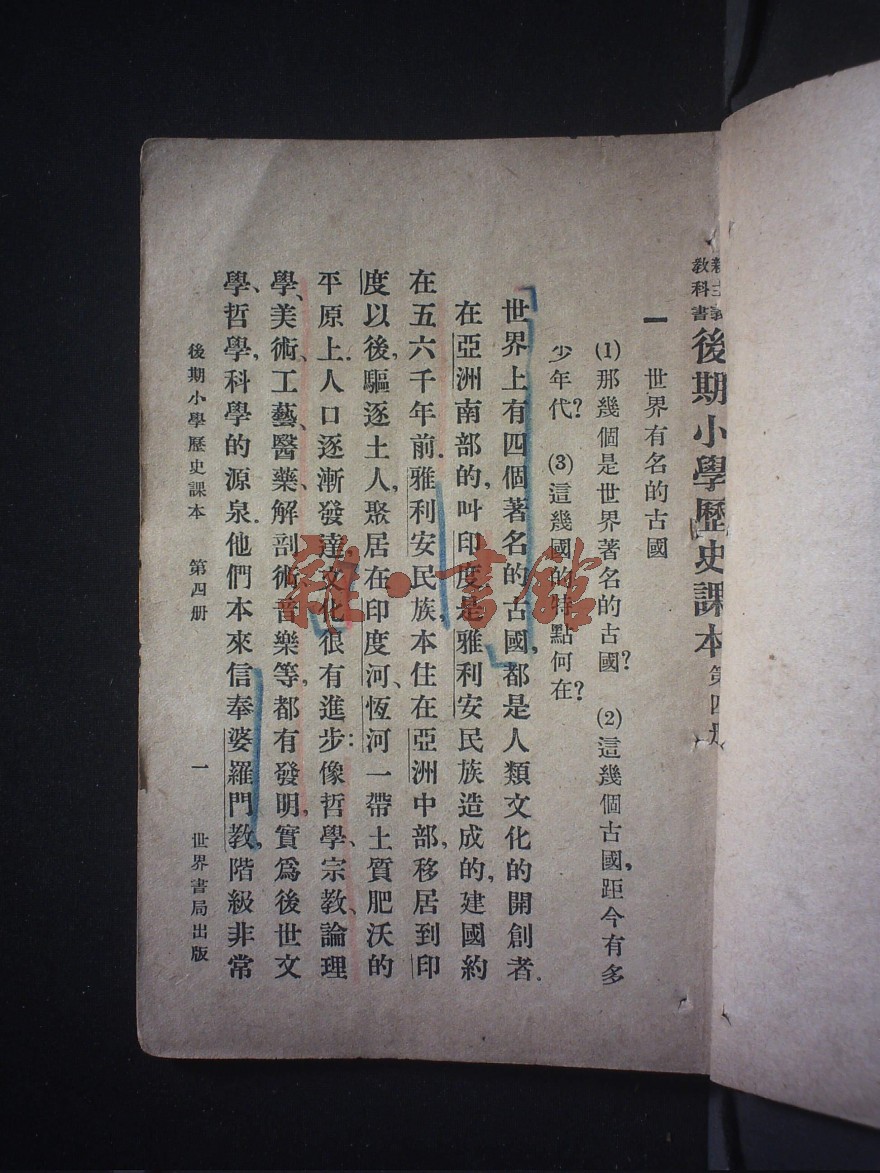 新主義教科書 後期小學歷史課本 第四册
一 世界有名的古國
(1)那幾個是世界著名的古國？ (2)這幾個古國，距今有多
少年代？ (3)這幾國的特點何在？
世界上有四個著名的古國，都是人類文化的開創者．
在亞洲南部的，叫印度，是雅利安民族造成的，建國約
在五六千年前．雅利安民族，本住在亞洲中部，移居到印
度以後，驅逐土人，聚居在印度河、恆河一帶土質肥沃的
平原上．人口逐漸發達，文化很有進步：像哲學、宗教、論理
學、美術、工藝、醫藥、解剖術、音樂等，都有發明，實爲後世文
學、哲學，科學的源泉．他們本來信奉婆羅門教，階級非常
後期小學歷史課本 第四册 一 世界書局出版
雜·書館